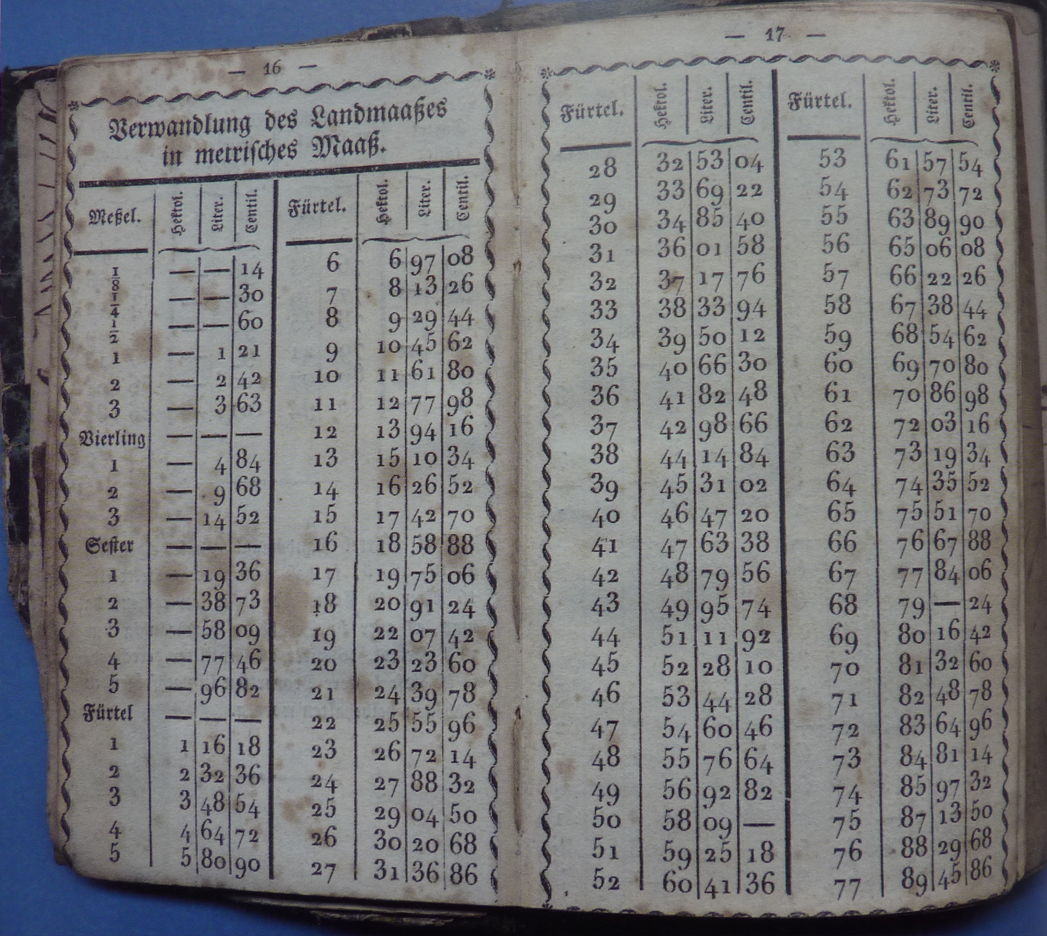 — 16 —
Verwandlung des Landmaaßes
in metrisches Maaß.
Meßel. Hektol. Liter. Centil. Fürtel. Hektol. Liter. Centil.
1/8 — — 14 6 6 97 08
1/4 — — 30 7 8 13 26
1/2 — — 60 8 9 29 44
1 — 1 21 9 10 45 62
2 — 2 42 10 11 61 80
3 — 3 63 11 12 77 98
Vierling — — — 12 13 94 16
1 — 4 84 13 15 10 34
2 — 9 68 14 16 26 52
3 — 14 52 15 17 42 70
Sester — — — 16 18 58 88
1 — 19 36 17 19 75 06
2 — 38 73 18 20 91 24
3 — 58 09 19 22 07 42
4 — 77 46 20 23 23 60
5 — 96 82 21 24 39 78
Fürtel — — — 22 25 55 96
1 1 16 18 23 26 72 14
2 2 32 36 24 27 88 32
3 3 48 54 25 29 04 50
4 4 64 72 26 30 20 68
5 5 80 90 27 31 36 86
— 17 —
Fürtel. Hektol. Liter. Centil. Fürtel. Hektol. Liter. Centil.
28 32 53 04 53 61 57 54
29 33 69 22 54 62 73 72
30 34 85 40 55 63 89 90
31 36 01 58 56 65 06 08
32 37 17 76 57 66 22 26
33 38 33 94 58 67 38 44
34 39 50 12 59 68 54 62
35 40 66 30 60 69 70 80
36 41 82 48 61 70 86 98
37 42 98 66 62 72 03 16
38 44 14 84 63 73 19 34
39 45 31 02 64 74 35 52
40 46 47 20 65 75 51 70
41 47 63 38 66 76 67 88
42 48 79 56 67 77 84 06
43 49 95 74 68 79 — 24
44 51 11 92 69 80 16 42
45 52 28 10 70 81 32 60
46 53 44 28 71 82 48 78
47 54 60 46 72 83 64 96
48 55 76 64 73 84 81 14
49 56 92 82 74 85 97 32
50 58 09 — 75 87 13 50
51 59 25 18 76 88 29 68
52 60 41 36 77 89 45 86